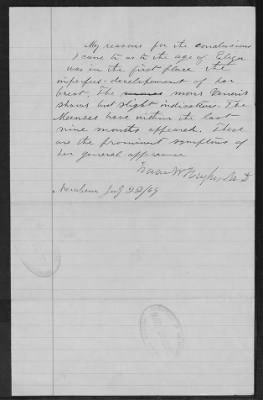 My reasons for the conclusions
I came to as to the age of Eliza
was in the first place the
imperfect developement of her
breast. The mons Veneris
shows but slight indications. The
Menses have within the last
nine months appeared. These
are the prominent symptoms of
her general appearance
M.D
July 22/69